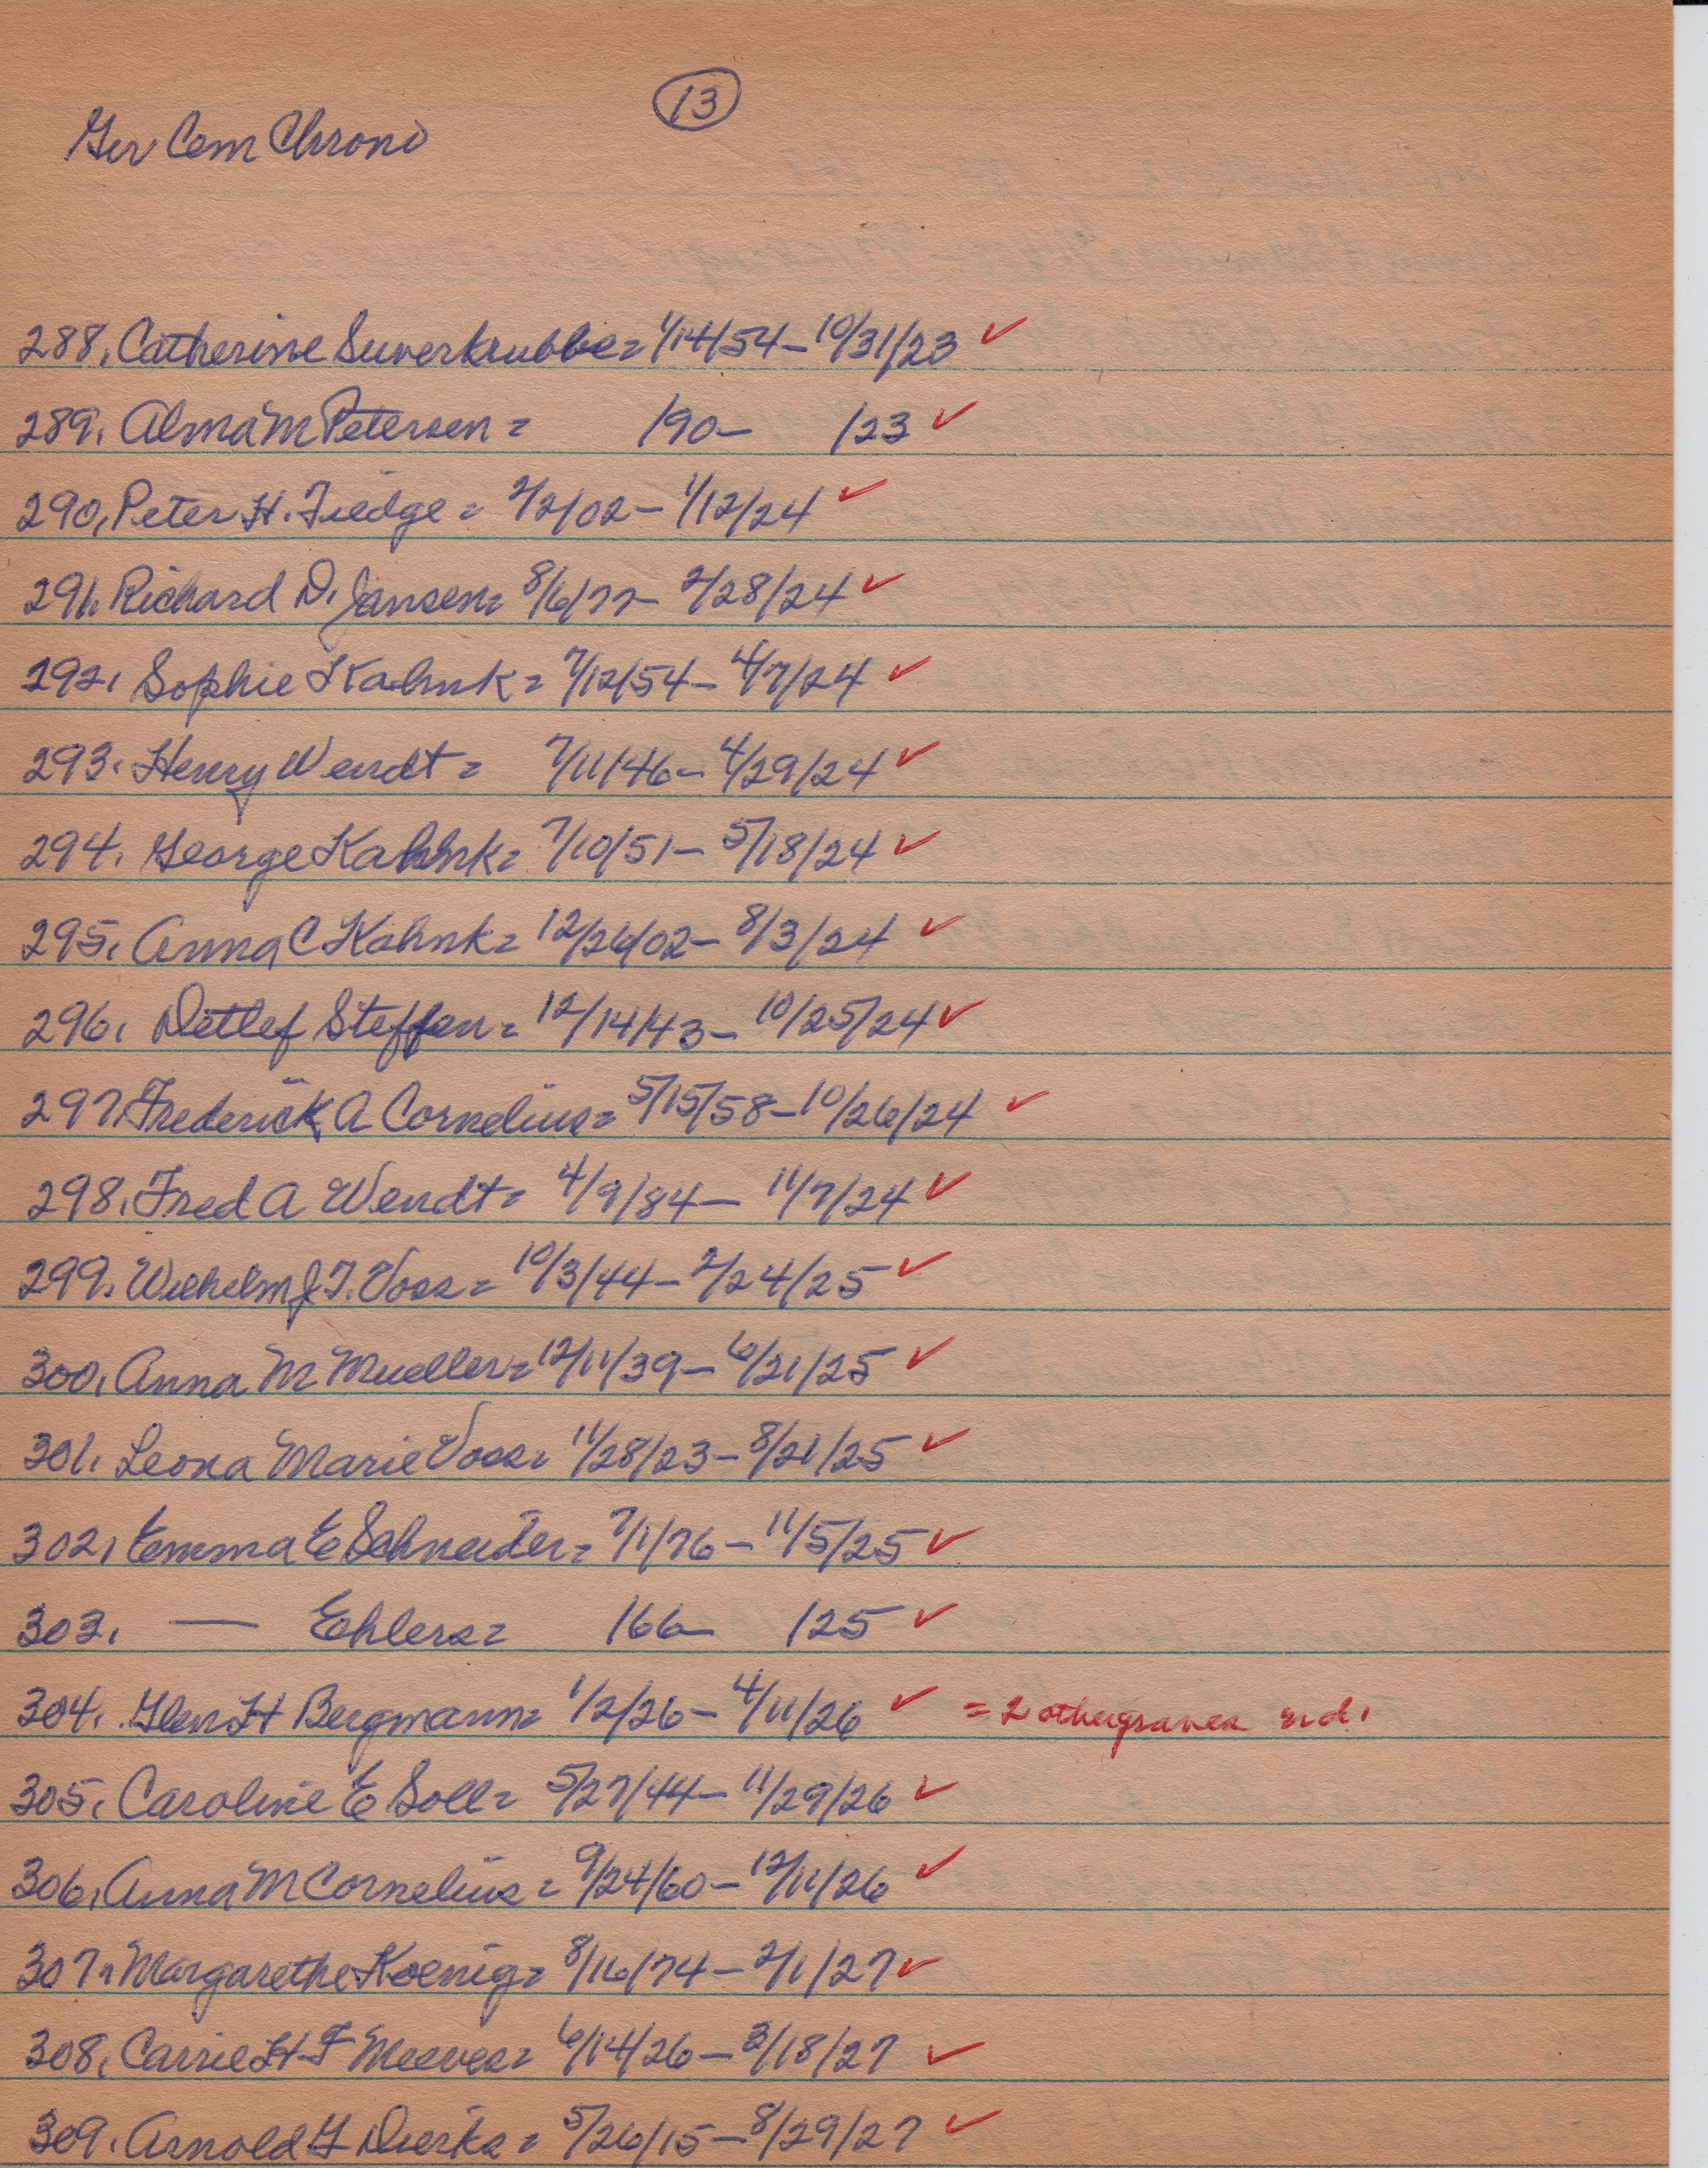 13
Ger Cem Chrono
288. Catherine Suverkrubbe = 1/14/54 - 10/31/23 ✓
289. Alma M Petersen = /90 - /23 ✓
290. Peter H. Tiedge = 2/2/02 - 1/12/24 ✓
291. Richard D. Jansen = 8/6/77 - 2/28/24 ✓
292. Sophie Kahnk = 7/12/54 - 4/7/24 ✓
293. Henry Wendt = 7/11/46 - 4/29/24 ✓
294. George Kahnk = 7/10/51 - 5/18/24 ✓
295. Anna C Kahnk = 12/26/02 - 8/3/24 ✓
296. Detlef Steffen = 12/14/43 - 10/25/24 ✓
297. Frederick A Cornelius = 5/15/58 - 10/26/24 ✓
298. Fred A Wendt = 4/9/84 - 11/7/24 ✓
299. Wilhelm J. T. Voss = 10/3/44 - 2/24/25 ✓
300. Anna M Mueller = 12/11/39 - 6/21/25 ✓
301. Leona Marie Voss = 11/28/23 - 8/21/25 ✓
302. Emma E Schneider = 7/1/76 - 11/5/25 ✓
303. — Ehlers = /66 - /25 ✓
304. Glen H Bergmann = 1/2/26 - 4/11/26 ✓ = 2 other graves n.d.
305. Caroline E Soll = 5/27/44 - 11/29/26 ✓
306. Anna M Cornelius = 9/24/60 - 12/11/26 ✓
307. Margarethe Koenig = 8/16/74 - 2/1/27 ✓
308. Carrie H F Meeves = 6/14/26 - 3/18/27 ✓
309. Arnold G Dierks = 5/26/15 - 8/29/27 ✓